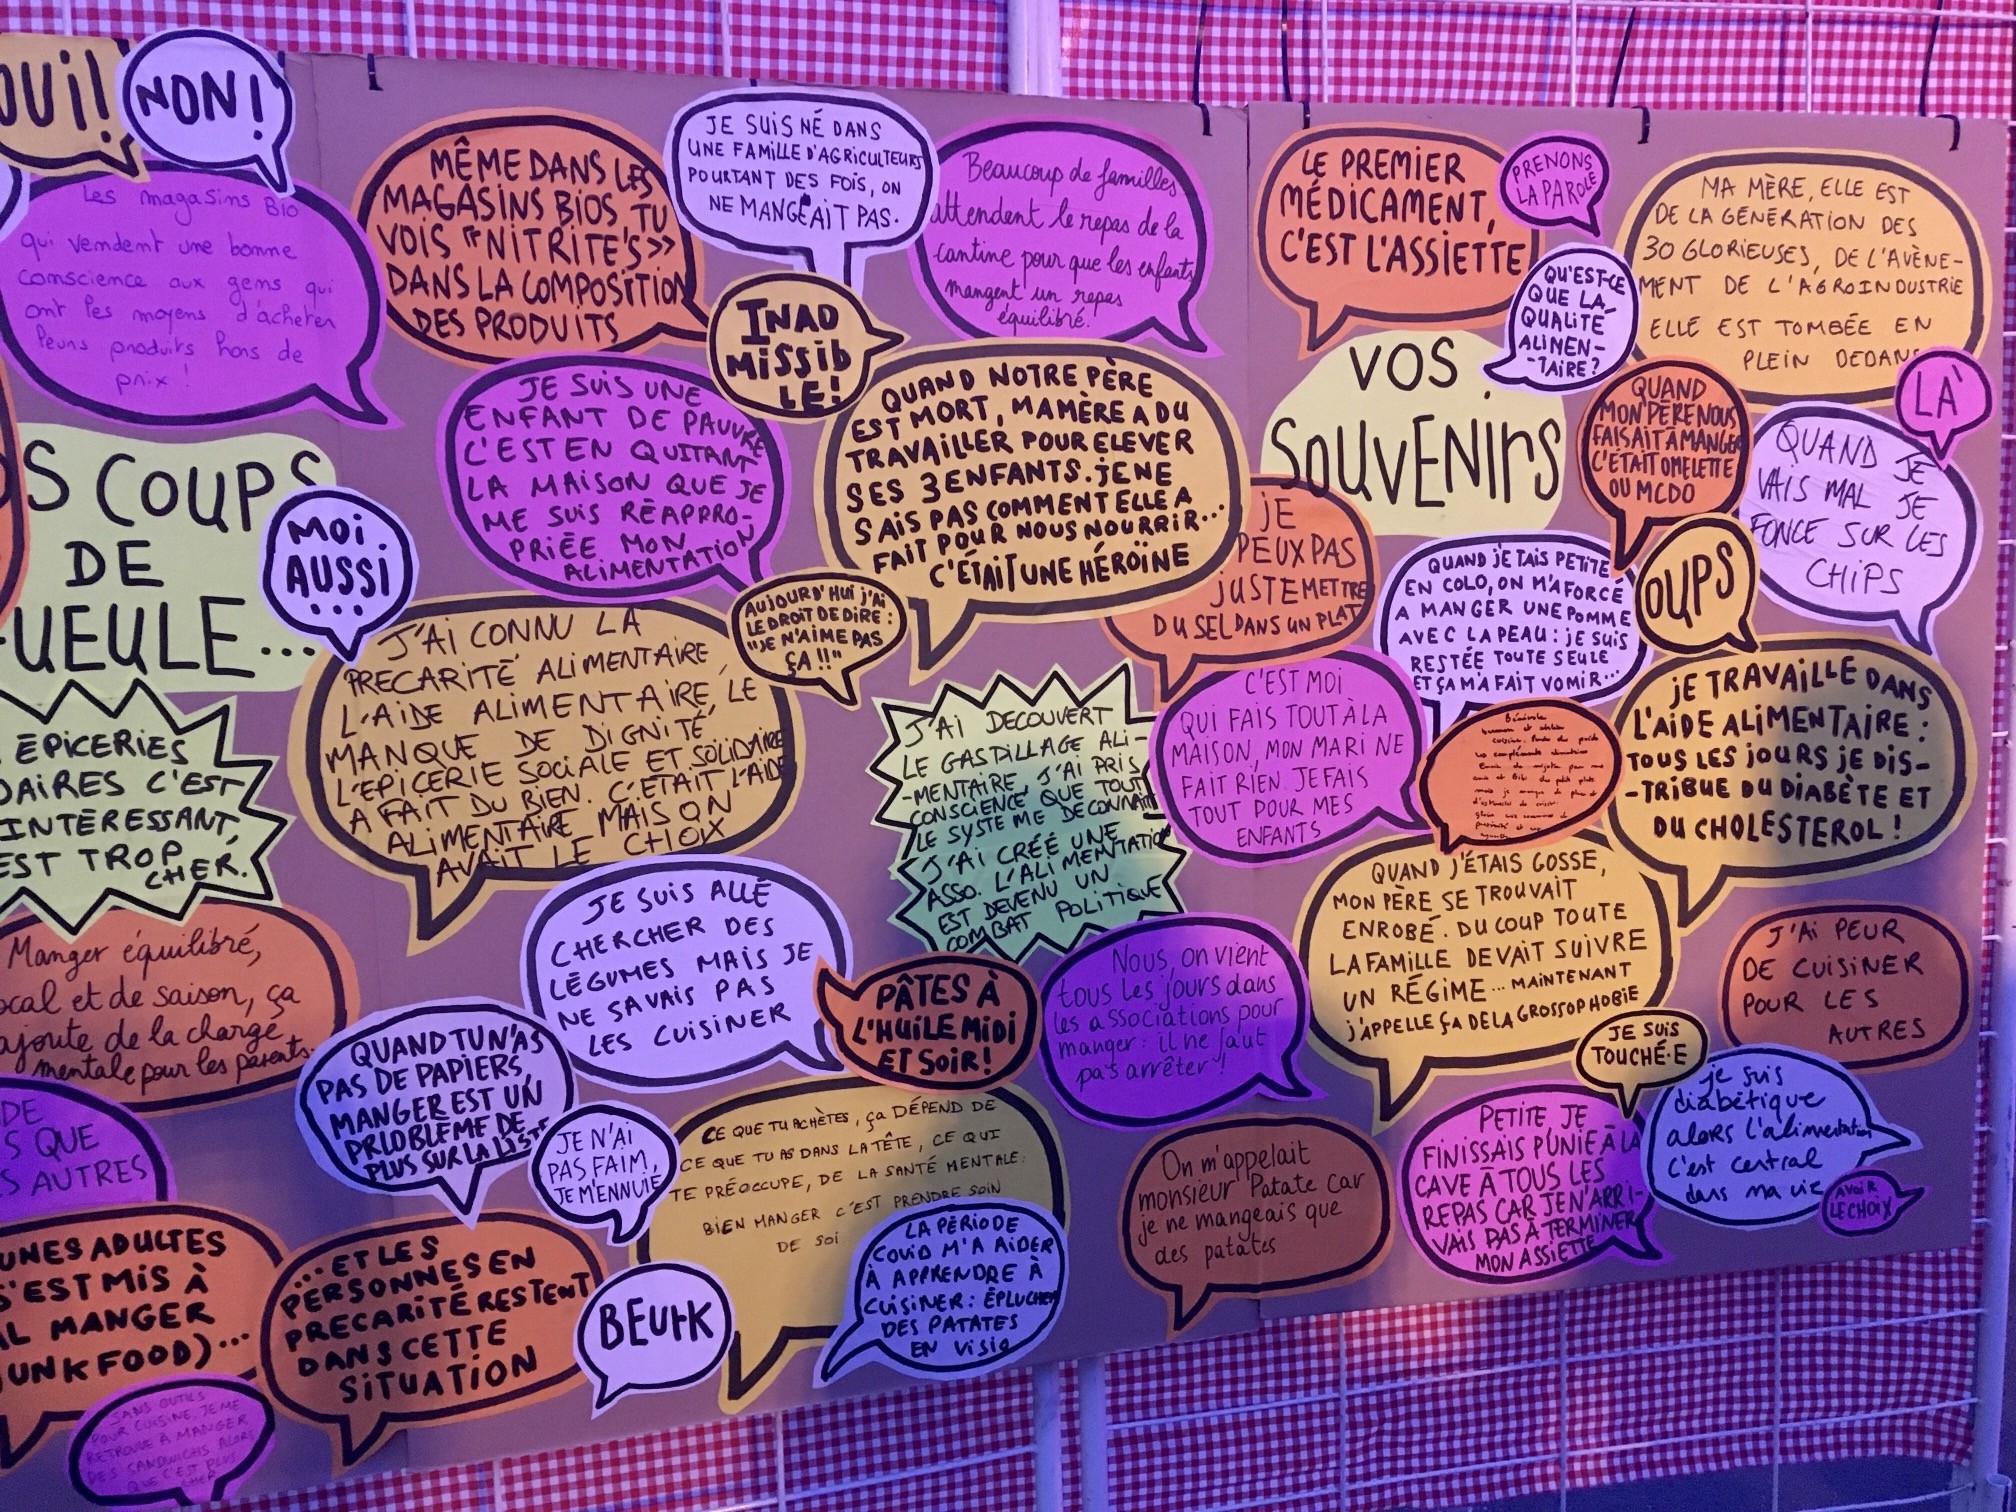 OUI!
NON!
Les magasins Bio
qui vendent une bonne
conscience aux gens qui
ont les moyens d'acheter
leurs produits hors de
prix !
MÊME DANS LES
MAGASINS BIOS, TU
VOIS "NITRITE'S»
DANS LA COMPOSITION
DES PRODUITS
JE SUIS NÉ DANS
UNE FAMILLE D'AGRICULTEURS
POURTANT DES FOIS, ON
NE MANGEAIT PAS.
Beaucoup de familles
attendent le repas de la
cantine pour que les enfants
mangent un repas
équilibré.
INAD
MISSIB
LE!
LE PREMIER
MÉDICAMENT,
C'EST L'ASSIETTE
PRENONS
LA PAROLE
QU'EST-CE
QUE LA
QUALITÉ
ALIMEN-
-TAIRE?
MA MÈRE, ELLE EST
DE LA GÉNÉRATION DES
30 GLORIEUSES, DE L'AVÈNE-
MENT DE L'AGROINDUSTRIE
ELLE EST TOMBÉE EN
PLEIN DEDANS
LÀ
VOS
SOUVENIRS
QUAND
MON PÈRE NOUS
FAISAIT À MANGER
C'ÉTAIT OMELETTE
OU MCDO
QUAND JE
VAIS MAL JE
FONCE SUR LES
CHIPS
OUPS
S COUPS
DE
GUEULE...
MOI
AUSSI
...
JE SUIS UNE
ENFANT DE PAUVRE
C'EST EN QUITANT
LA MAISON QUE JE
ME SUIS RÉAPPRO-
PRIÉE MON
ALIMENTATION
QUAND NOTRE PÈRE
EST MORT, MA MÈRE A DU
TRAVAILLER POUR ELEVER
SES 3 ENFANTS. JE NE
SAIS PAS COMMENT ELLE A
FAIT POUR NOUS NOURRIR...
C'ÉTAIT UNE HÉROÏNE
AUJOURD'HUI J'AI
LE DROIT DE DIRE :
"JE N'AIME PAS
ÇA !!"
JE
PEUX PAS
JUSTE METTRE
DU SEL DANS UN PLAT
QUAND J'ETAIS PETITE
EN COLO, ON M'A FORCÉ
A MANGER UNE POMME
AVEC LA PEAU : JE SUIS
RESTÉE TOUTE SEULE
ET ÇA M'A FAIT VOMIR...
J'AI CONNU LA
PRECARITÉ ALIMENTAIRE,
L'AIDE ALIMENTAIRE, LE
MANQUE DE DIGNITÉ
L'EPICERIE SOCIALE ET SOLIDAIRE
A FAIT DU BIEN. C'ÉTAIT L'AIDE
ALIMENTAIRE MAIS ON
AVAIT LE CHOIX
J'AI DECOUVERT
LE GASTILLAGE ALI-
-MENTAIRE, J'AI PRIS
CONSCIENCE QUE TOUT
LE SYSTEME DECONNAIT
J'AI CRÉÉ UNE
ASSO. L'ALIMENTATION
EST DEVENU UN
COMBAT POLITIQUE
C'EST MOI
QUI FAIS TOUT À LA
MAISON, MON MARI NE
FAIT RIEN. JE FAIS
TOUT POUR MES
ENFANTS
JE TRAVAILLE DANS
L'AIDE ALIMENTAIRE :
TOUS LES JOURS JE DIS-
-TRIBUE DU DIABÈTE ET
DU CHOLESTEROL !
ÉPICERIES
DAIRES C'EST
INTÉRESSANT,
EST TROP
CHER.
Manger équilibré,
local et de saison, ça
ajoute de la charge
mentale pour les parents.
JE SUIS ALLÉ
CHERCHER DES
LÉGUMES MAIS JE
NE SAVAIS PAS
LES CUISINER
PÂTES À
L'HUILE MIDI
ET SOIR !
Nous, on vient
tous les jours dans
les associations pour
manger : il ne faut
pas arrêter !
QUAND J'ÉTAIS GOSSE,
MON PÈRE SE TROUVAIT
ENROBÉ. DU COUP TOUTE
LA FAMILLE DEVAIT SUIVRE
UN RÉGIME... MAINTENANT
J'APPELLE ÇA DE LA GROSSOPHOBIE
J'AI PEUR
DE CUISINER
POUR LES
AUTRES
JE SUIS
TOUCHÉ·E
QUAND TU N'AS
PAS DE PAPIERS,
MANGER EST UN
PRLOBLÈME DE
PLUS SUR LA LISTE
JE N'AI
PAS FAIM,
JE M'ENNUIE
DE
S QUE
S AUTRES
CE QUE TU ACHÈTES, ÇA DÉPEND DE
CE QUE TU AS DANS LA TÊTE, CE QUI
TE PRÉOCCUPE, DE LA SANTÉ MENTALE.
BIEN MANGER C'EST PRENDRE SOIN
DE SOI
On m'appelait
monsieur Patate car
je ne mangeais que
des patates
PETITE JE
FINISSAIS PUNIE À LA
CAVE À TOUS LES
REPAS CAR JE N'ARRI-
VAIS PAS À TERMINER
MON ASSIETTE
je suis
diabétique
alors l'alimentation
c'est central
dans ma vie
AVOIR
LE CHOIX
UNES ADULTES
S'EST MIS À
AL MANGER
JUNK FOOD)...
... ET LES
PERSONNES EN
PRECARITÉ RESTENT
DANS CETTE
SITUATION
BEURK
LA PÉRIODE
COVID M'A AIDER
À APPRENDRE À
CUISINER : ÉPLUCHER
DES PATATES
EN VISIO
SANS OUTILS
POUR CUISINE, JE ME
RETROUVE A MANGER
DES SANDWICHS ALORS
QUE C'EST PLUS
CHER